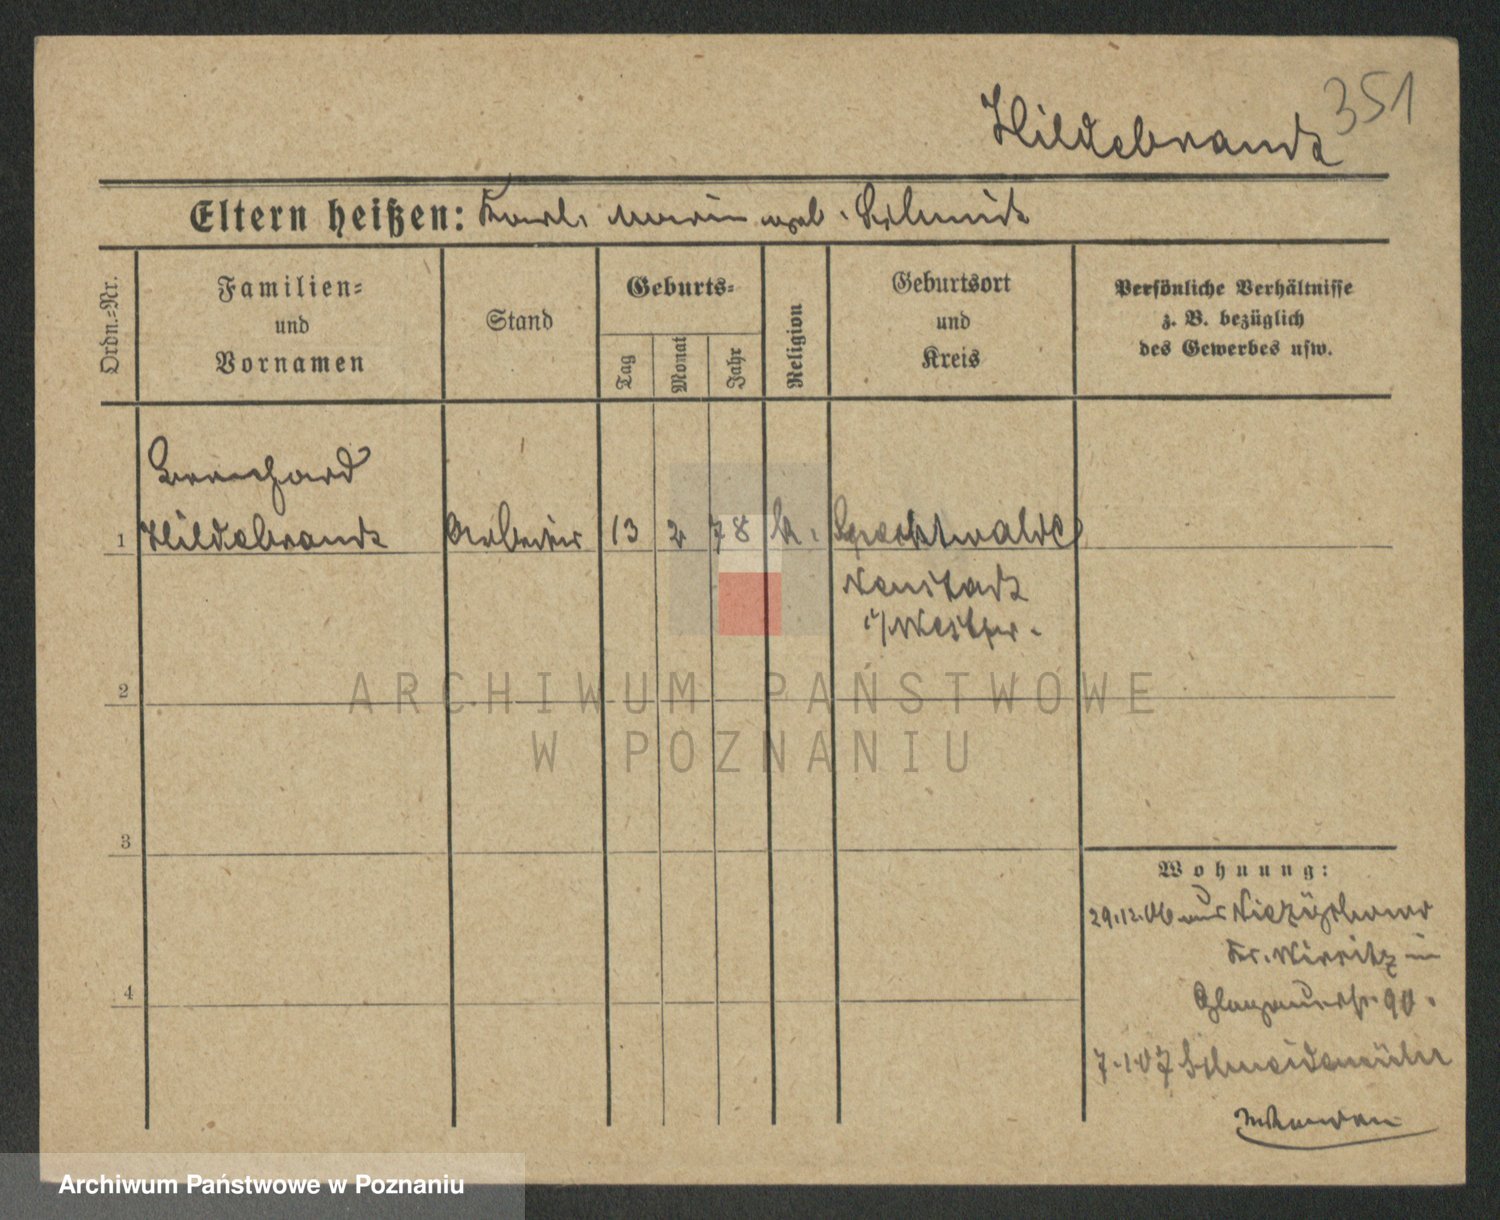 351
Hildebrandt
Eltern heißen: Karl. Maria geb. Schmidt
Ordn.-Nr.
Familien-
und
Vornamen
Stand
Geburts-
Tag
Monat
Jahr
Religion
Geburtsort
und
Kreis
Persönliche Verhältnisse
z. B. bezüglich
des Gewerbes usw.
Bernhard
1 Hildebrandt Arbeiter 13 2 78 k.
Neustadt
i/Westpr.
2
3
4
Wohnung:
29.12.06 aus
Kr. Wirsitz in
Glogauerstr. 90.
7.1.07 Schneidemühl
ARCHIWUM PAŃSTWOWE
W POZNANIU
Archiwum Państwowe w Poznaniu